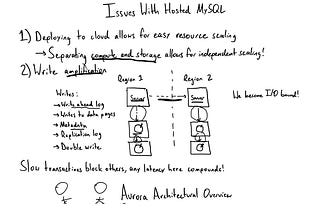 Issues With Hosted MySQL
1) Deploying to cloud allows for easy resource scaling
→ Separating compute and storage allows for independent scaling!
2) Write amplification
Region 1
Region 2
Writes:
→ Write ahead log
→ Writes to data pages
→ Metadata
→ Replication log
→ Double write
Server
Server
We become I/O bound!
Slow transactions block others, any latency here compounds!
Aurora Architectural Overview